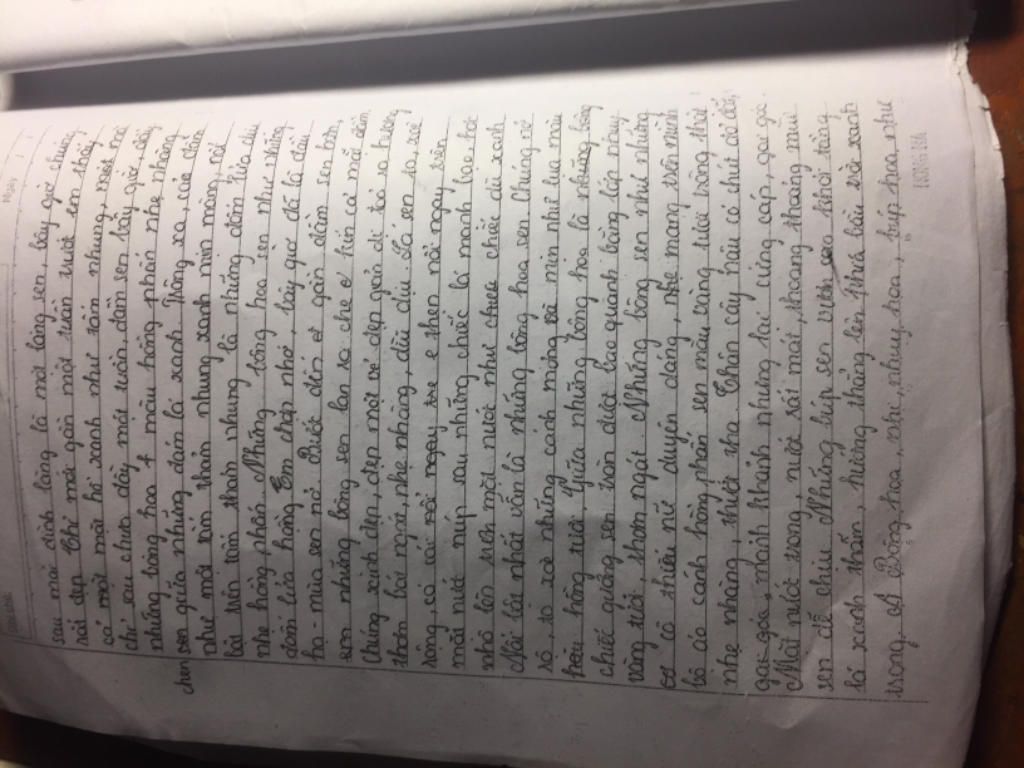 sau mái đình làng là một làng sen, bây giờ chúng
rất đẹp. Chỉ mới gần một tuần trước em thấy
cả một mặt hồ xanh như tấm nhung, một nơi
chỉ sau chưa đầy một tuần, đầm sen bây giờ, đầy
những bông hoa màu hồng phấn nhẹ nhàng
chen sen giữa những đám lá xanh. Trông xa, cái đầm
như một tấm thảm nhung xanh mịn màng, nổi
bật trên tấm thảm nhung là những đốm lửa dịu
nhẹ hồng nhấn. Những bông hoa sen như những
đốm lửa hồng. Em chợp nhớ, bây giờ đã là đầu
hạ - mùa sen nở. Bước đến gần đầm sen hơn,
em những bông sen lan sa che kín cả mặt đầm.
Chúng xinh đẹp, đẹp một vẻ đẹp giản dị toả ra hương
thơm bát mát, nhẹ nhàng, dịu dịu. Lá sen to, xoè
rộng, có cái nở ngay e thẹn nổi ngay trên
mặt nước núp sau những chiếc lá mảnh bạc hơi
nhô lên trên mặt nước như chiếc dù xanh
Nổi bật nhất vẫn là những bông hoa sen. Chúng nở
rộ, to xoè những cánh mỏng và mịn như lụa màu
hồng tươi. Giữa những bông hoa là những bông
chiếc gương sen tròn được bao quanh bằng lớp nhuỵ
vàng tươi, thơm ngát. Những bông sen như những
cô thiếu nữ duyên dáng, nhẹ mang trên mình
bộ áo cánh hồng phấn xen màu vàng tươi trông thật
nhẹ nhàng, thướt tha. Thân cây hầu có chút cô độc,
gai góc, mảnh khảnh nhưng lại cứng cáp, gai góc.
Mặt nước trong, nước rất mát, thoang thoảng mùi
sen dễ chịu. Những búp sen vươn khỏi tầng
lá xanh thẫm, hướng thẳng lên phía bầu trời xanh
trong. Bông hoa, nhị, nhuỵ hoa, búp hoa như